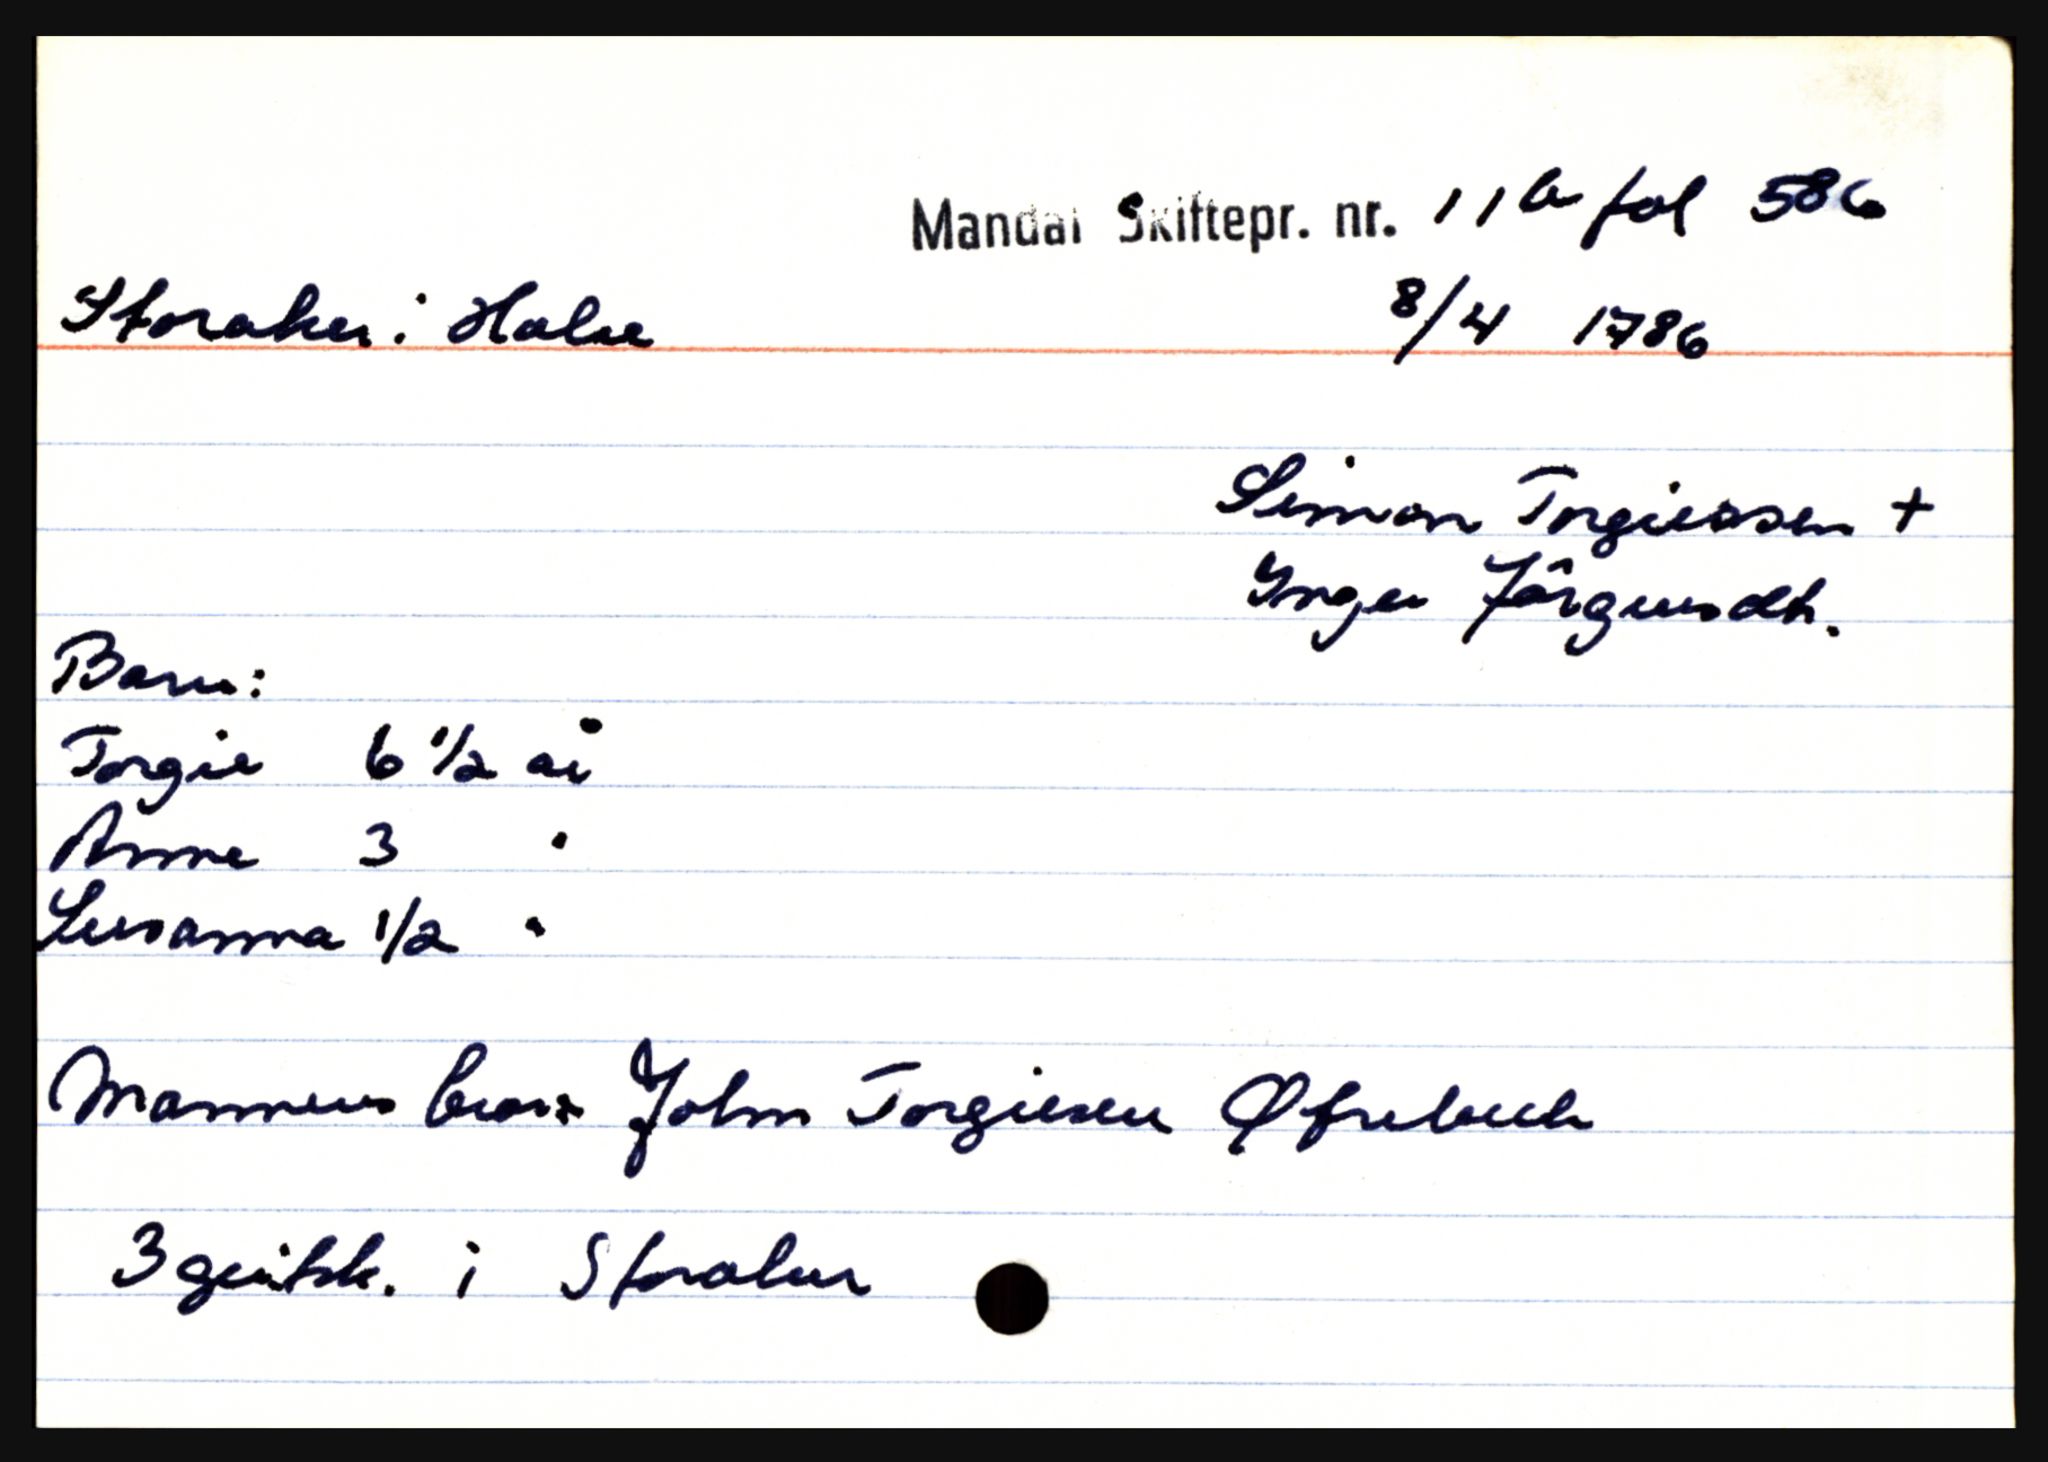 Mandal Skiftepr. nr. 11b fol 586
Storaker i Halse 8/4 1786
Simon Torgiessen +
Inger Jörgensdt.
Barn:
Torgie 6 1/2 år
Anne 3 "
Susanna 1/2 "
Mannens bror John Torgiesen Øfrebeck
3 geitsk. i Storaker